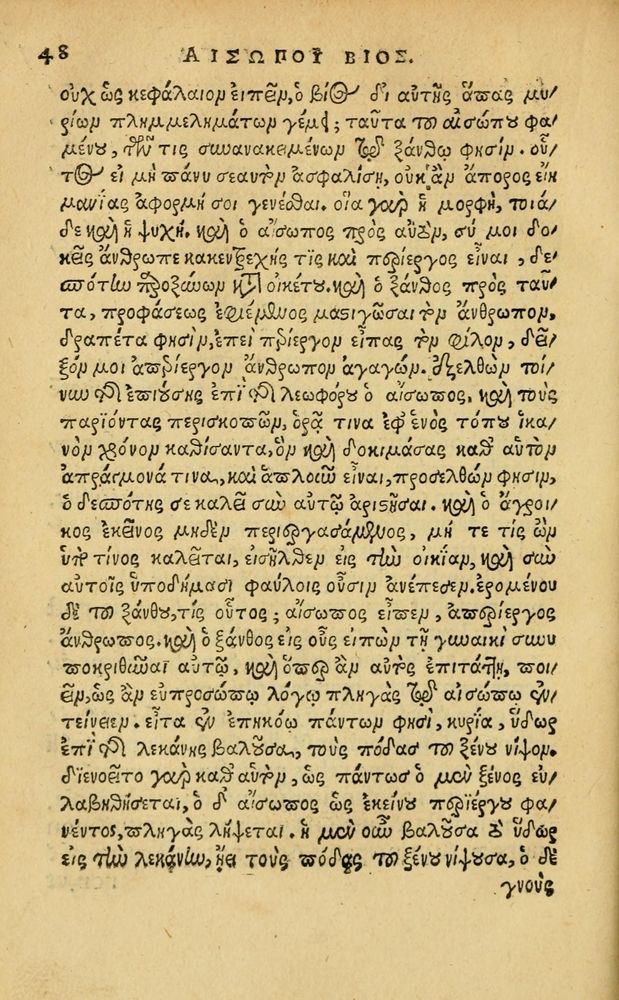 48 ΑΙΣΩΠΟΥ ΒΙΟΣ.
οὐχ ὡς κεφάλαιον εἰπεῖν, ὁ βίος δι αὐτῆς ἅπας μυ-
ρίων πλημμελημάτων γέμει; ταῦτα τοῦ αἰσώπου φα-
μένου, τῶν τις συνανακειμένων τῷ ξάνθῳ φησίν. οὗ-
τος εἰ μὴ πάνυ σεαυτὸν ἀσφαλίσῃ, οὐκ ἂν ἄπορος εἰς
μανίας ἀφορμή σοι γενέσθαι. οἵα γὰρ ἡ μορφὴ, τοιά-
δε καὶ ἡ ψυχή. καὶ ὁ αἴσωπος πρὸς αὐτὸν, σύ μοι δο-
κεῖς ἄνθρωπε κακεντρεχής τις καὶ περίεργος εἶναι, δε-
σπότην παροξύνων κατὰ οἰκέτου. καὶ ὁ ξάνθος πρὸς ταῦ-
τα, προφάσεως ἐφιέμενος μαστιγῶσαι τὸν ἄνθρωπον,
δραπέτα φησὶν, ἐπεὶ περίεργον εἶπας τὸν φίλον, δεῖ-
ξόν μοι ἀπερίεργον ἄνθρωπον ἀγαγών. ἐξελθὼν τοί-
νυν τῆς ἐπιούσης ἐπὶ τῆς λεωφόρου ὁ αἴσωπος, καὶ τοὺς
παριόντας περισκοπῶν, ὁρᾷ τινα ἐφ ἑνὸς τόπου ἱκα-
νὸν χρόνον καθίσαντα, ὃν καὶ δοκιμάσας καθ αὑτὸν
ἀπράγμονά τινα, καὶ ἁπλοῦν εἶναι, προσελθών φησιν,
ὁ δεσπότης σε καλεῖ σὺν αὐτῷ ἀριστῆσαι. καὶ ὁ ἄγροι-
κος ἐκεῖνος μηδὲν περιεργασάμενος, μή τε τίς ὢν
ὑπό τινος καλεῖται, εἰσῆλθεν εἰς τὴν οἰκίαν, καὶ σὺν
αὐτοῖς ὑποδήμασι φαύλοις οὖσιν ἀνέπεσεν. ἐρομένου
δὲ τοῦ ξάνθου, τίς οὗτος; αἴσωπος εἶπεν, ἀπερίεργος
ἄνθρωπος. καὶ ὁ ξάνθος εἰς οὖς εἰπὼν τῇ γυναικὶ συνυ-
ποκριθῆναι αὐτῷ, καὶ ὅπερ ἂν αὐτὸς ἐπιτάττῃ, ποι-
εῖν, ὡς ἂν εὐπροσώπῳ λόγῳ πληγὰς τῷ αἰσώπῳ ἐν-
τείνειεν. εἶτα ἐν ἐπηκόῳ πάντων φησὶ, κυρία, ὕδωρ
ἐπὶ τῆς λεκάνης βαλοῦσα, τοὺς πόδας τοῦ ξένου νίψον.
διενοεῖτο γὰρ καθ αὑτὸν, ὡς πάντως ὁ μὲν ξένος εὐ-
λαβηθήσεται, ὁ δ αἴσωπος ὡς ἐκείνου περιέργου φα-
νέντος, πληγὰς λήψεται. ἡ μὲν οὖν βαλοῦσα τὸ ὕδωρ
εἰς τὴν λεκάνην, ᾔει τοὺς πόδας τοῦ ξένου νίψουσα, ὁ δὲ
γνοὺς